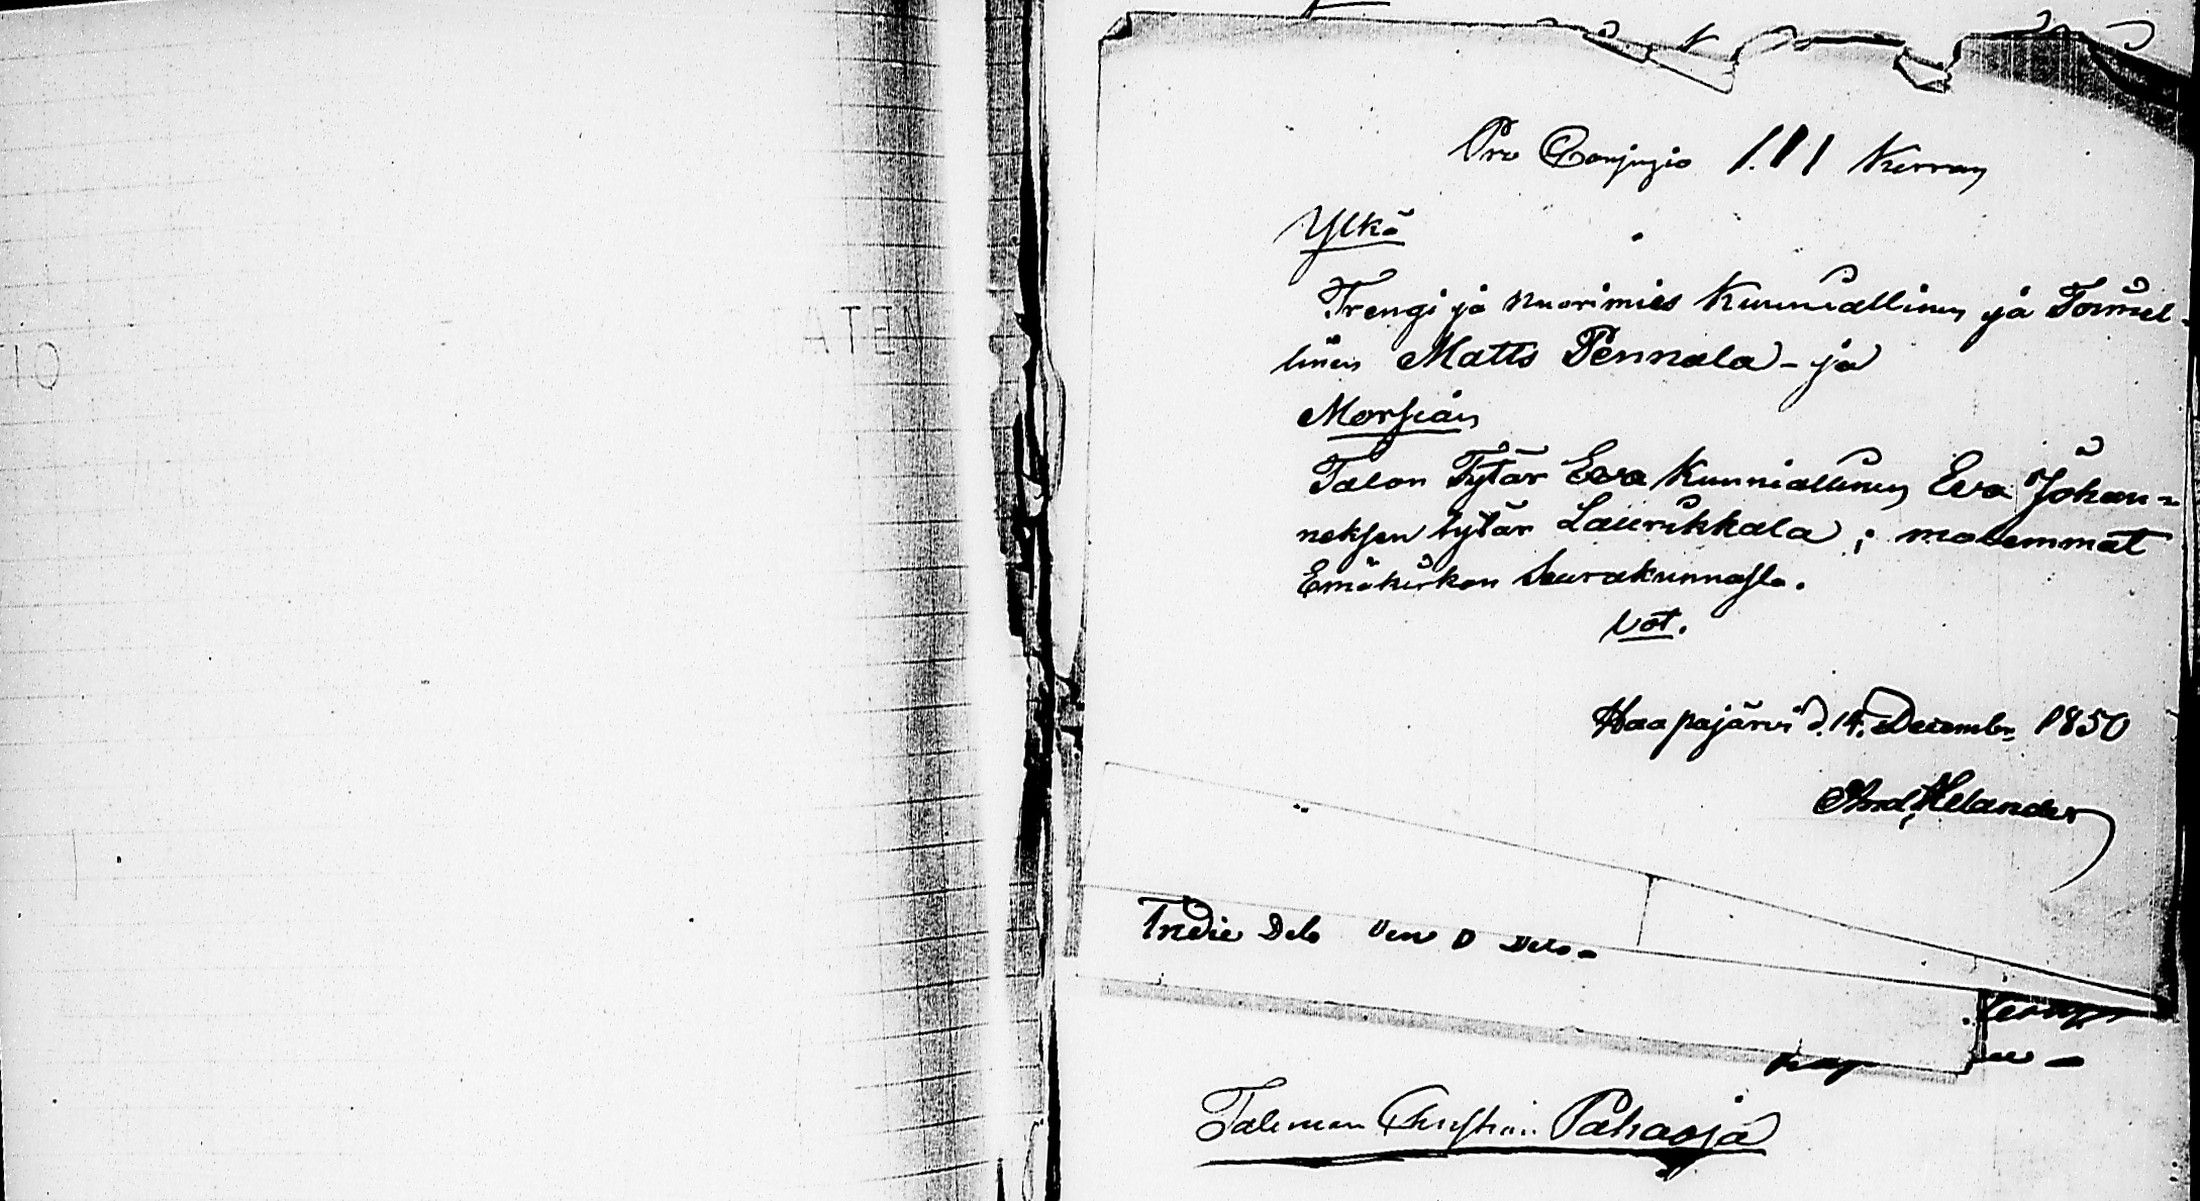 Pro Conjugio 1. 11 Kerran
Ylkä
Trengi ja nuorimies Kunniallinen ja Toimel-
linen Matts Pennala - ja
Morsian
Talon Tytär Eva Kunniallinen Eva Johan=
neksen tytär Laurikkala; molemmat
Emäkirkon Seurakunnasta.
Vot.
Haapajärvi d. 14. Decembr. 1850
And. Helander
Tredie Dels Den D Dels -
Taleman Christian Pahaoja